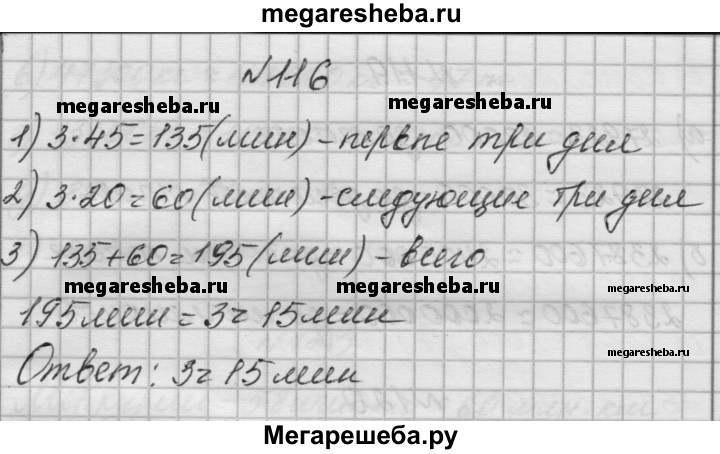 megaresheba.ru
№116
megaresheba.ru megaresheba.ru
1) 3·45=135(мин)-первые три дня
2) 3·20=60(мин)-следующие три дня
3) 135+60=195(мин)-всего
megaresheba.ru megaresheba.ru megaresheba.ru
195мин=3ч 15мин
megaresheba.ru
Ответ: 3ч 15мин
Мегарешеба.ру